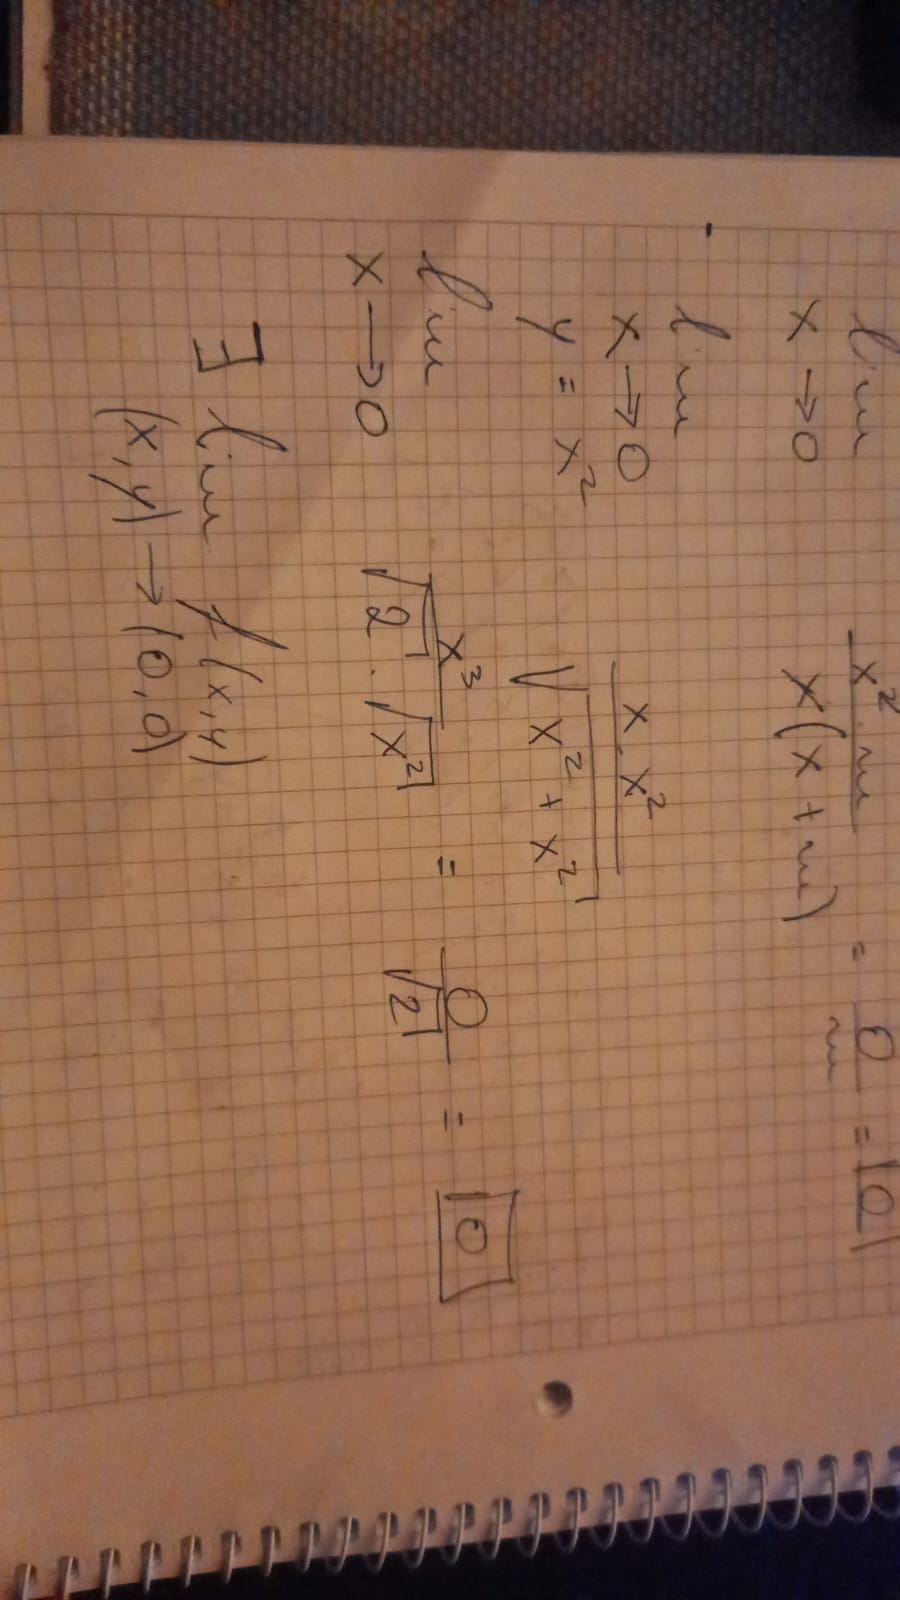 lim x→0 x²·m / x(x+m) = 0/m = 0
lim x→0 y = x² x·x² / √(x² + x²)
lim x→0 x³ / √2 · √x² = 0/√2 = 0
∃ lim (x,y)→(0,0) f(x,y)